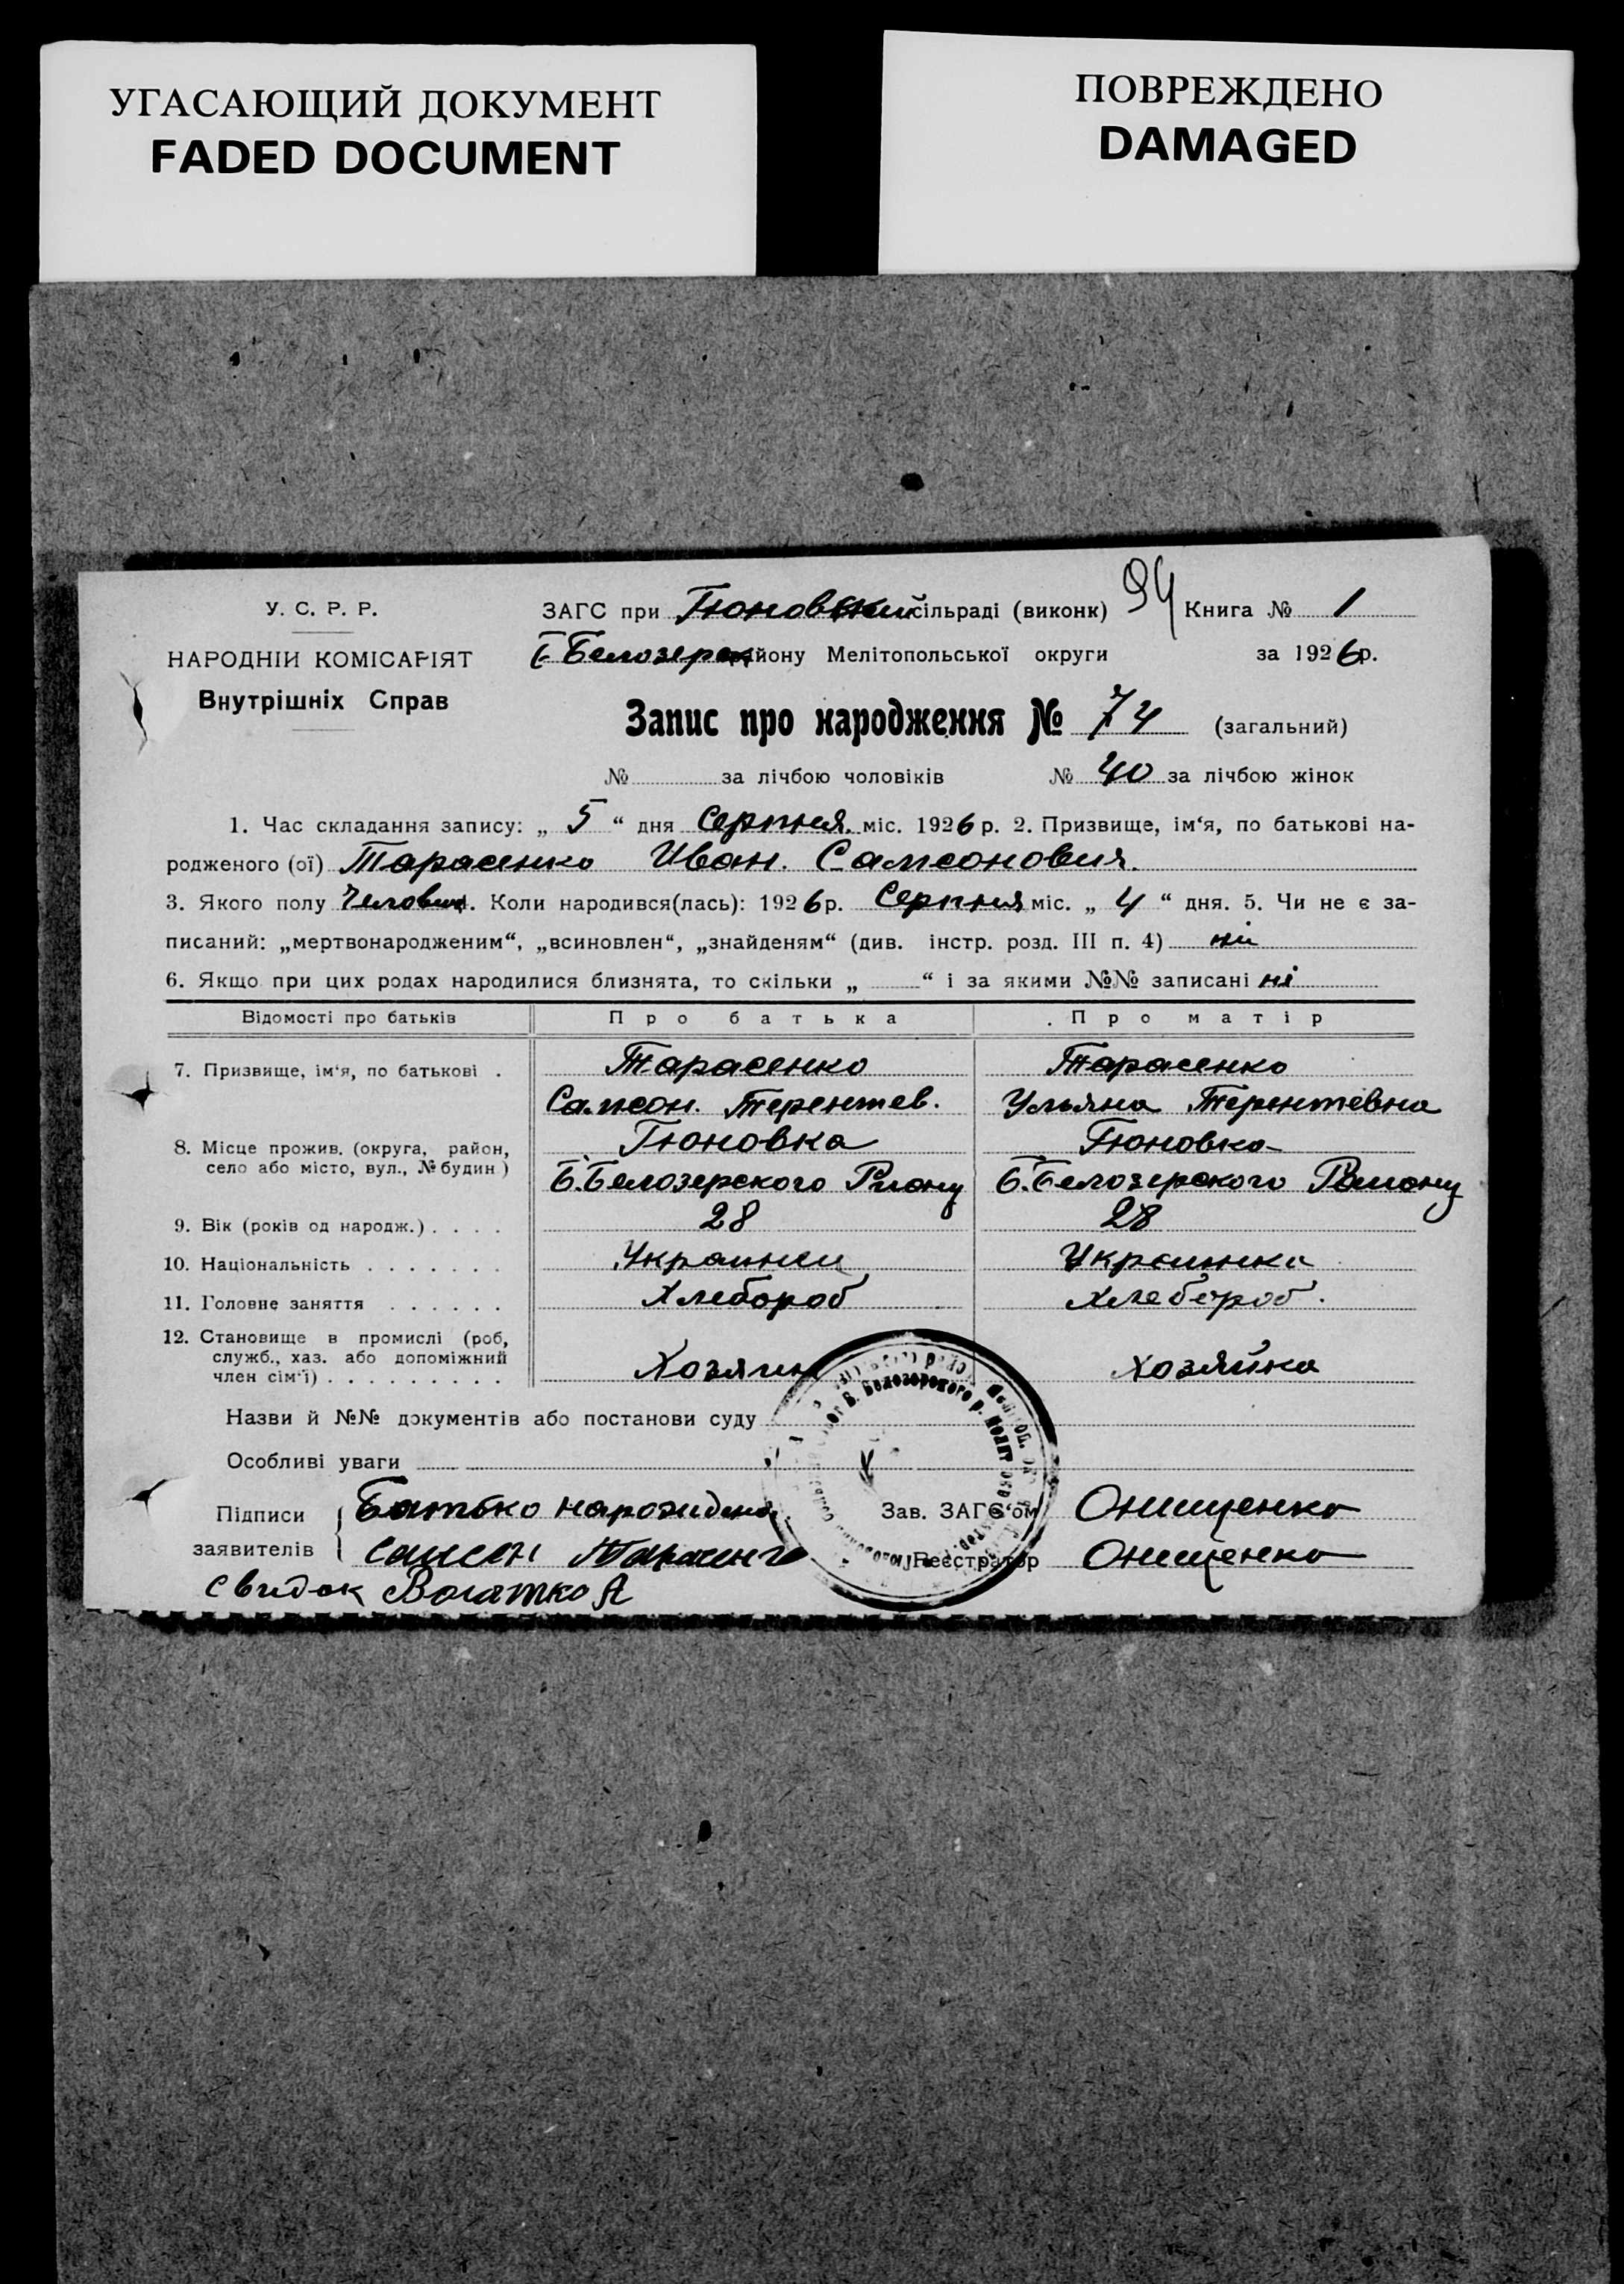 УГАСАЮЩИЙ ДОКУМЕНТ
FADED DOCUMENT
ПОВРЕЖДЕНО
DAMAGED
У. С. Р. Р.
НАРОДНІЙ КОМІСАРІЯТ
Внутрішніх Справ
ЗАГС при Гюновский сільраді (виконк) 94 Книга № 1
Б Белозерск району Мелітопольської округи за 1926 р.
Запис про народження № 74 (загальний)
№ за лічбою чоловіків № 40 за лічбою жінок
1. Час складання запису: „ 5 “ дня Серпня міс. 1926 р. 2. Призвище, ім‘я, по батькові на-
родженого (ої) Тарасенко Иван. Самсонович.
3. Якого полу Чиловик. Коли народився(лась): 1926 р. Серпня міс. „ 4 “ дня. 5. Чи не є за-
писаний: „мертвонародженим“, „всиновлен“, „знайденям“ (див. інстр. розд. III п. 4) ни
6. Якщо при цих родах народилися близнята, то скільки „ “ і за якими №№ записані ні
Відомості про батьків Про батька Про матір
7. Призвище, ім‘я, по батькові . Тарасенко Тарасенко
Самсон. Терентев. Ульяна Терентевна
8. Місце прожив. (округа, район, Гюновка Гюновка
село або місто, вул., № будин) Б. Белозерского Району Б. Белозерского Району
9. Вік (років од народж.) . . . . 28 28
10. Національність . . . . . . . Украинец Украинка
11. Головне заняття . . . . . . Хлебороб Хлебороб.
12. Становище в промислі (роб,
служб., хаз. або допоміжний
член сім‘ї) . . . . . . . . . Хозяин Хозяйка
Назви й №№ документів або постанови суду
Особливі уваги
Підписи Батько Зав. ЗАГС‘ом Онищенко
заявителів Самсон Тарасенко Реєстратор Онищенко
Свидок